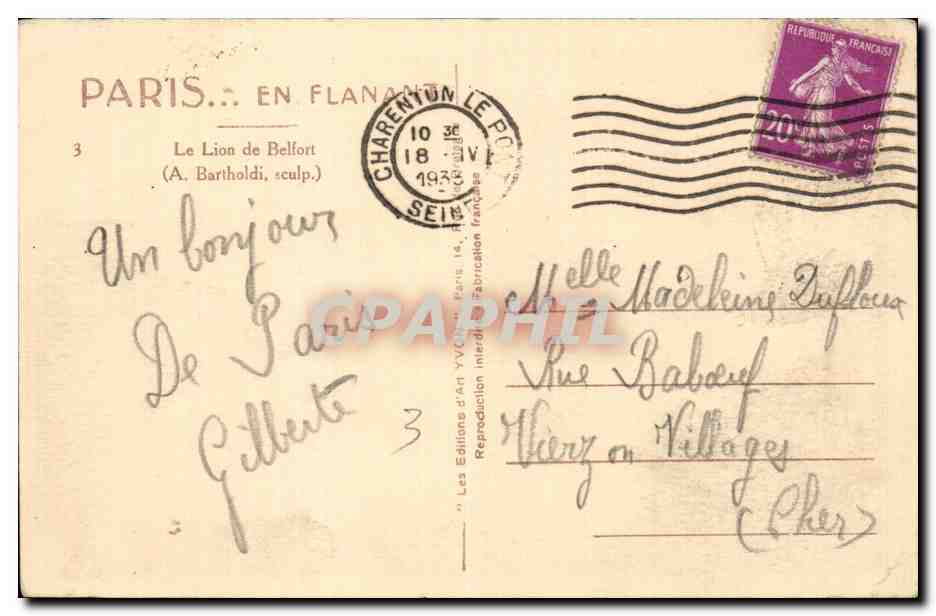 PARIS... EN FLANANT
3
Le Lion de Belfort
(A. Bartholdi, sculp.)
Un bonjour
De Paris
Gilberte
3
CHARENTON LE PONT
10 30
18 IV
SEINE
REPUBLIQUE FRANÇAISE
20c
POSTES
"Les Editions d'Art YVON" Paris, 14,
Reproduction interdite Fabrication française
Melle Madeleine Dufloux
Rue Babœuf
Vierzon Villages
(Cher)
CPAPHIL